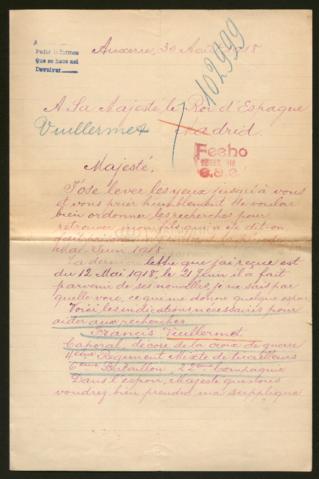 Auxerre, 30 Août 1918
A
Pedir informes
Que se hace así
Devolver
102999
A Sa Majesté, le Roi d'Espagne
Vuillermet
Madrid.
Fecho
Majesté,
J'ose lever les yeux jusqu'à vous
et vous prier humblement de vouloir
bien ordonner les recherches pour
retrouver mon fils, qui a dit-on
1918
La dernière lettre que j'ai reçue est
du 12 Mai 1918, le 21 Juin il a fait
parvenir de ses nouvelles, je ne sais par
quelle voie, ce qui me donne quelque espoir
Voici les indications nécessaires pour
aider aux recherches
Francis Vuillermet
Caporal, décoré de la croix de guerre
Régiment Mixte de tirailleurs
6ème Bataillon, 22me Compagnie
Dans l'espoir, Majesté que vous
voudrez bien prendre ma supplique